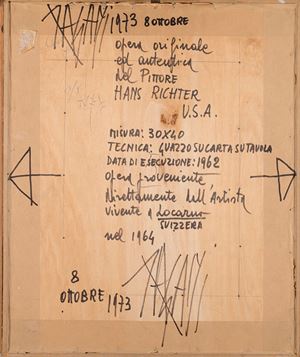 PAGANI 1973 8 OTTOBRE
opera originale
ed autentica
del PITTORE
HANS RICHTER
U.S.A.
MISURA: 30X40
TECNICA: GUAZZO SU CARTA SU TAVOLA
DATA DI ESECUZIONE: 1962
opera proveniente
direttamente dall'Artista
vivente a Locarno
SVIZZERA
nel 1964
8
OTTOBRE 1973
PAGANI